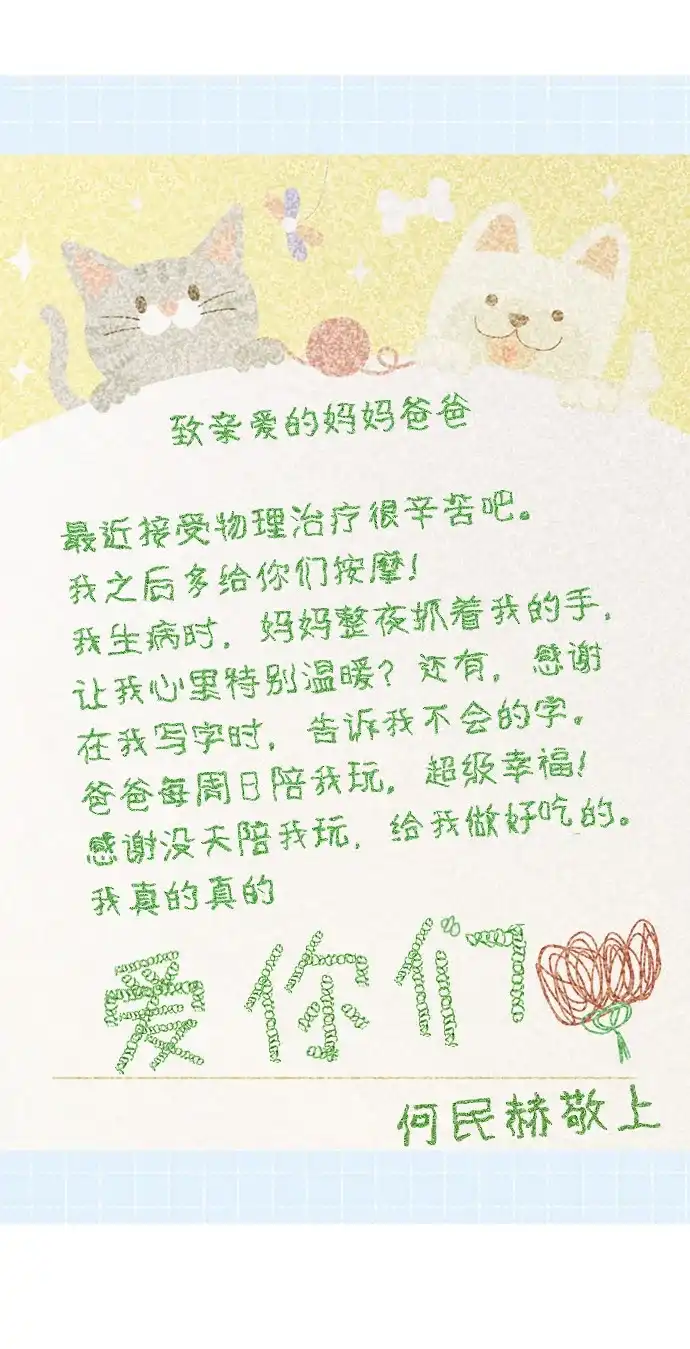 致亲爱的妈妈爸爸
最近接受物理治疗很辛苦吧。
我之后多给你们按摩!
我生病时，妈妈整夜抓着我的手，
让我心里特别温暖? 还有，感谢
在我写字时，告诉我不会的字。
爸爸每周日陪我玩，超级幸福!
感谢没天陪我玩，给我做好吃的。
我真的真的
爱你们
何民赫敬上